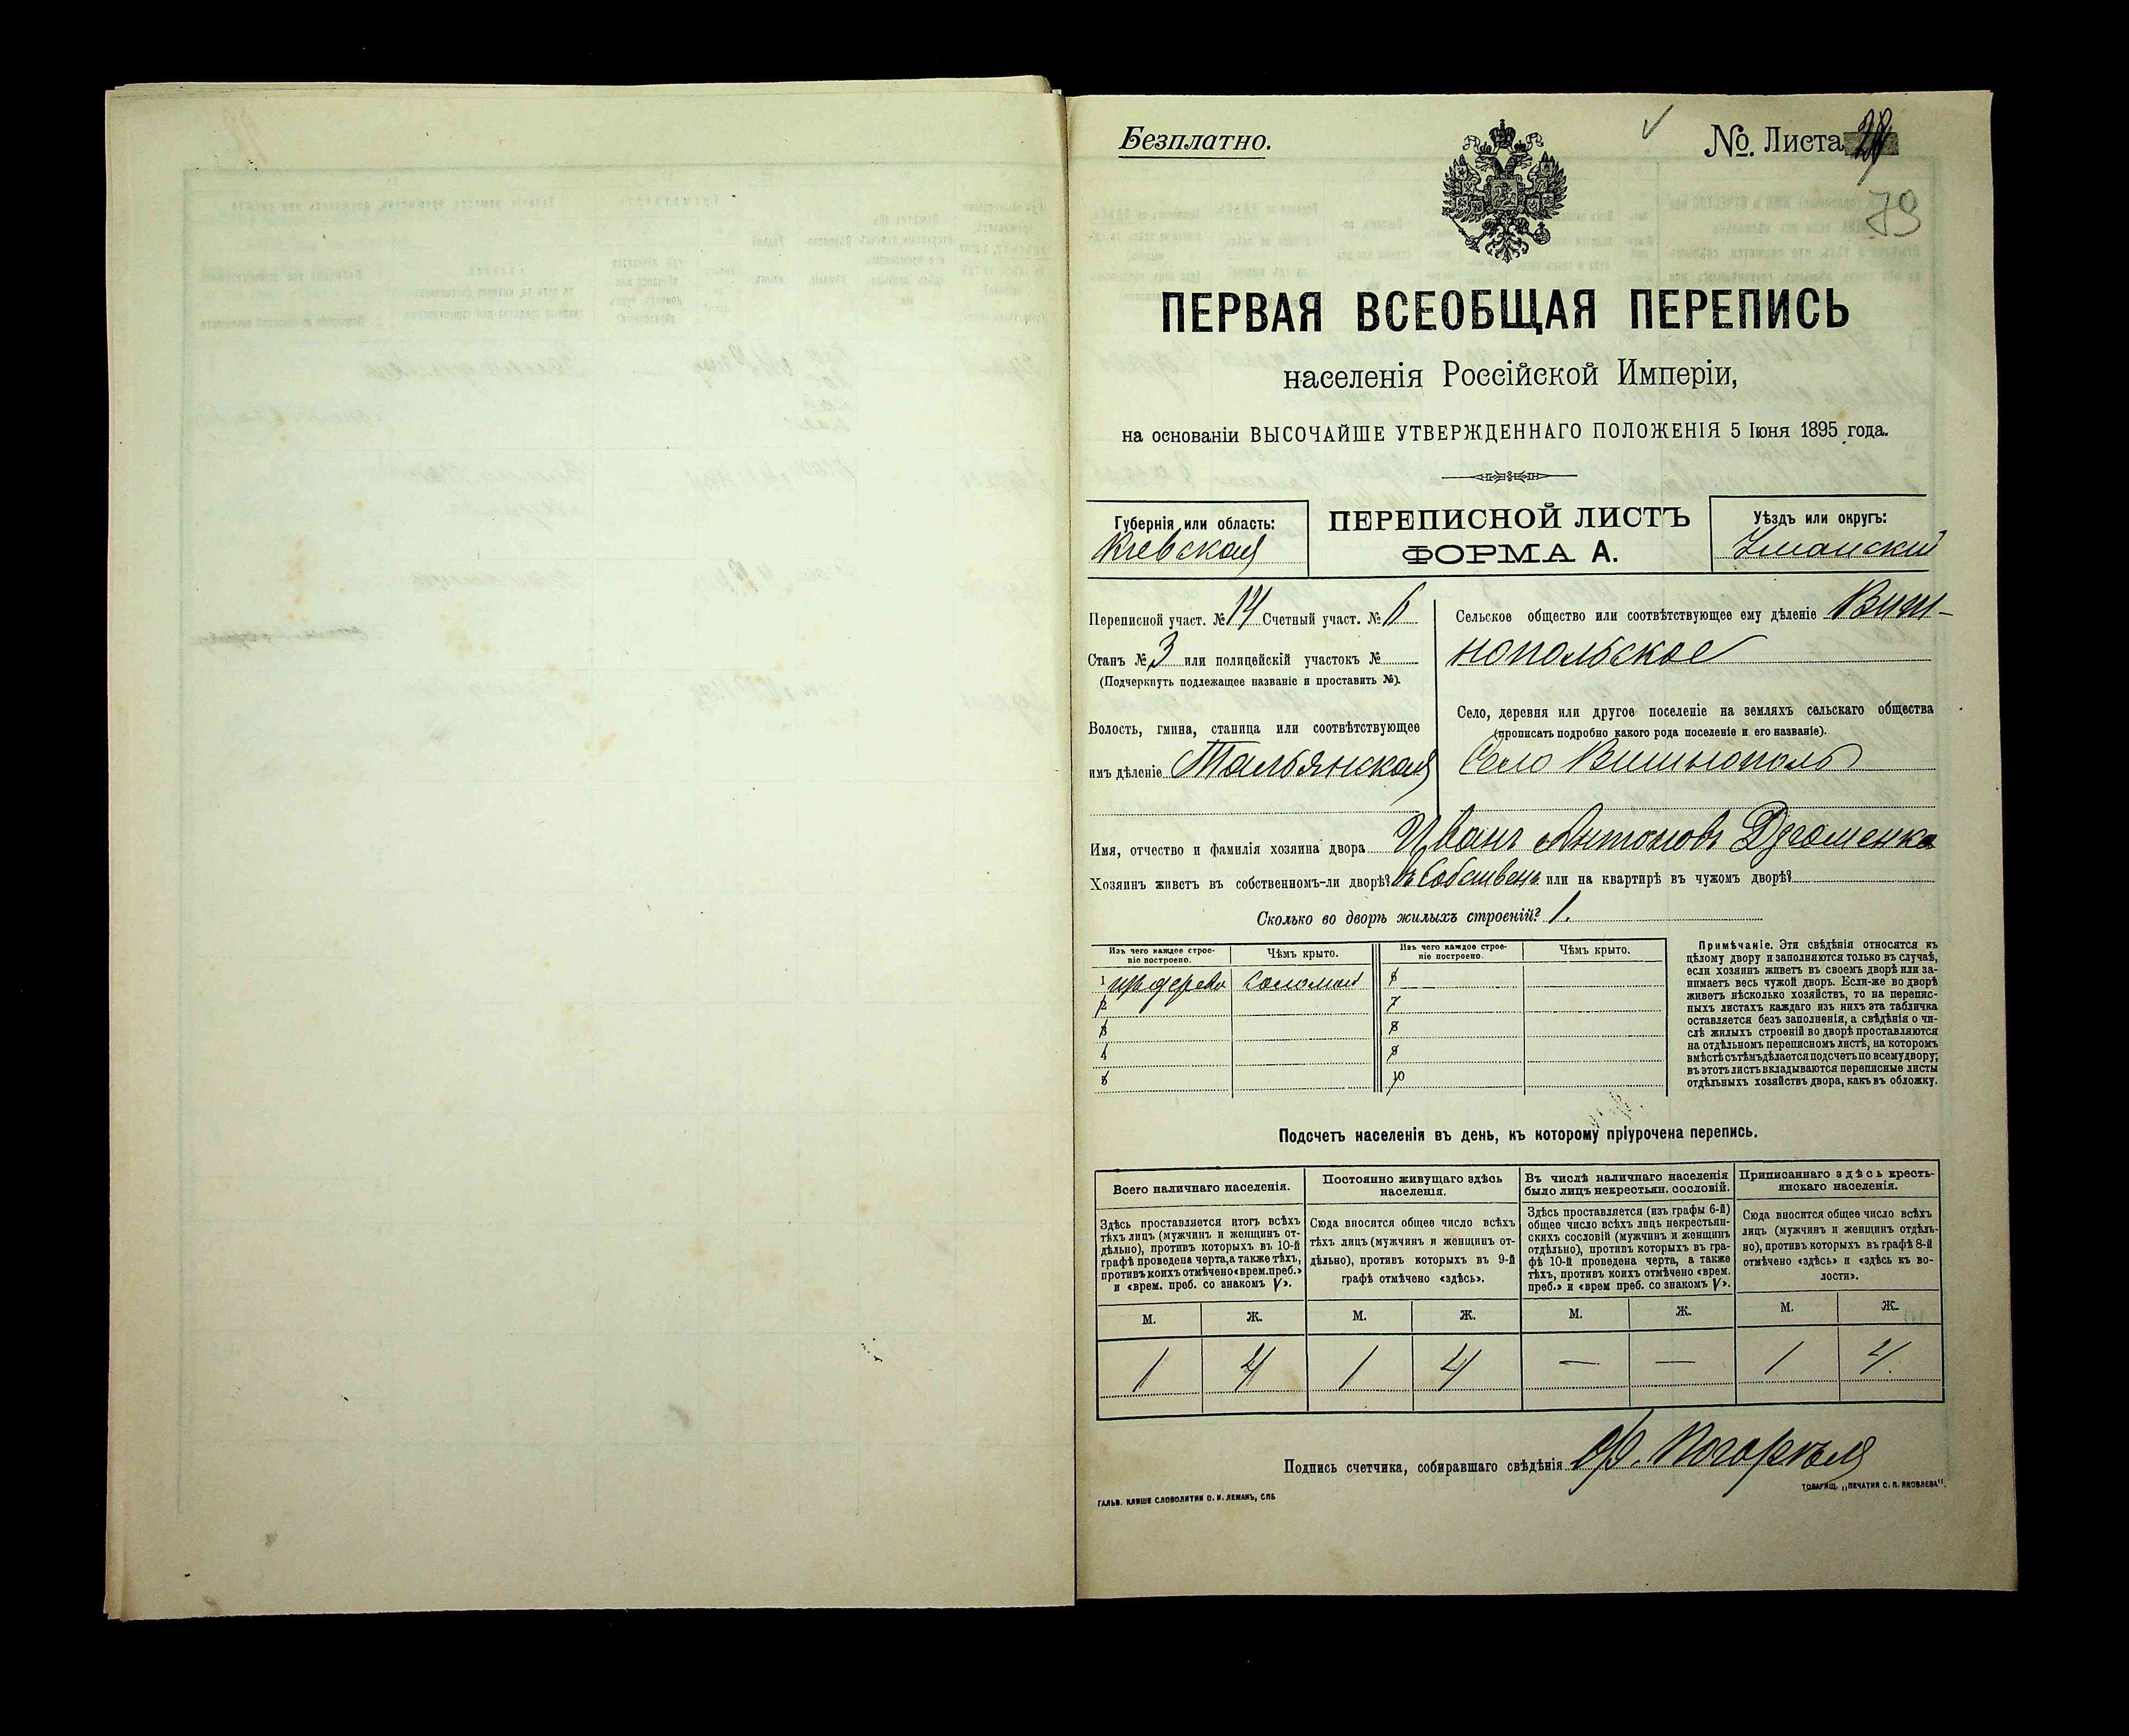 Безплатно.
№ Листа
79
ПЕРВАЯ ВСЕОБЩАЯ ПЕРЕПИСЬ
населенія Россійской Имперіи,
на основаніи ВЫСОЧАЙШЕ УТВЕРЖДЕННАГО ПОЛОЖЕНІЯ 5 Іюня 1895 года.
Губернія или область:
Кіевская
ПЕРЕПИСНОЙ ЛИСТЪ
ФОРМА А.
Уѣздъ или округъ:
Уманский
Переписной участ. № 14 Счетный участ. № 6
Станъ № 3 или полицейскій участокъ №
(Подчеркнуть подлежащее названіе и проставить №).
Волость, гмина, станица или соотвѣтствующее
имъ дѣленіе Тальянская
Сельское общество или соотвѣтствующее ему дѣленіе Виш-
нопольское
Село, деревня или другое поселеніе на земляхъ сельскаго общества
(прописать подробно какого рода поселеніе и его названіе).
Село Вишнополь
Имя, отчество и фамилія хозяина двора Иванъ Антоновъ
Хозяинъ живетъ въ собственномъ-ли дворѣ? въ собствен. или на квартирѣ въ чужомъ дворѣ?
Сколько во дворѣ жилыхъ строеній? 1.
Изъ чего каждое строе-
ніе построено.
Чѣмъ крыто.
Изъ чего каждое строе-
ніе построено.
Чѣмъ крыто.
1 изъ дерева соломой 6
2 7
3 8
4 9
5 10
Примѣчаніе. Эти свѣдѣнія относятся къ
цѣлому двору и заполняются только въ случаѣ,
если хозяинъ живетъ въ своемъ дворѣ или за-
нимаетъ весь чужой дворъ. Если-же во дворѣ
живетъ нѣсколько хозяйствъ, то на перепис-
ныхъ листахъ каждаго изъ нихъ эта табличка
оставляется безъ заполненія, а свѣдѣнія о чи-
слѣ жилыхъ строеній во дворѣ проставляются
на отдѣльномъ переписномъ листѣ, на которомъ
вмѣстѣ съ тѣмъ дѣлается подсчетъ по всему двору;
въ этотъ листъ вкладываются переписные листы
отдѣльныхъ хозяйствъ двора, какъ въ обложку.
Подсчетъ населенія въ день, къ которому пріурочена перепись.
Всего наличнаго населенія.
Здѣсь проставляется итогъ всѣхъ
тѣхъ лицъ (мужчинъ и женщинъ от-
дѣльно), противъ которыхъ въ 10-й
графѣ проведена черта, а также тѣхъ,
противъ коихъ отмѣчено «врем. преб.»
и «врем. преб. со знакомъ V».
Постоянно живущаго здѣсь
населенія.
Сюда вносится общее число всѣхъ
тѣхъ лицъ (мужчинъ и женщинъ от-
дѣльно), противъ которыхъ въ 9-й
графѣ отмѣчено «здѣсь».
Въ числѣ наличнаго населенія
было лицъ некрестьян. сословій.
Здѣсь проставляется (изъ графы 6-й)
общее число всѣхъ лицъ некрестьян-
скихъ сословій (мужчинъ и женщинъ
отдѣльно), противъ которыхъ въ гра-
фѣ 10-й проведена черта, а также
тѣхъ, противъ коихъ отмѣчено «врем.
преб.» и «врем преб. со знакомъ V».
Приписаннаго здѣсь кресть-
янскаго населенія.
Сюда вносится общее число всѣхъ
лицъ (мужчинъ и женщинъ отдѣль-
но), противъ которыхъ въ графѣ 8-й
отмѣчено «здѣсь» и «здѣсь къ во-
лости».
М. Ж. М. Ж. М. Ж. М. Ж.
1 4 1 4 — — 1 4
Подпись счетчика, собиравшаго свѣдѣнія
ГАЛЬВ. КЛИШЕ СЛОВОЛИТНИ О. И. ЛЕМАНЪ, СПБ
ТОВАРИЩ. „ПЕЧАТНЯ С. П. ЯКОВЛЕВА".